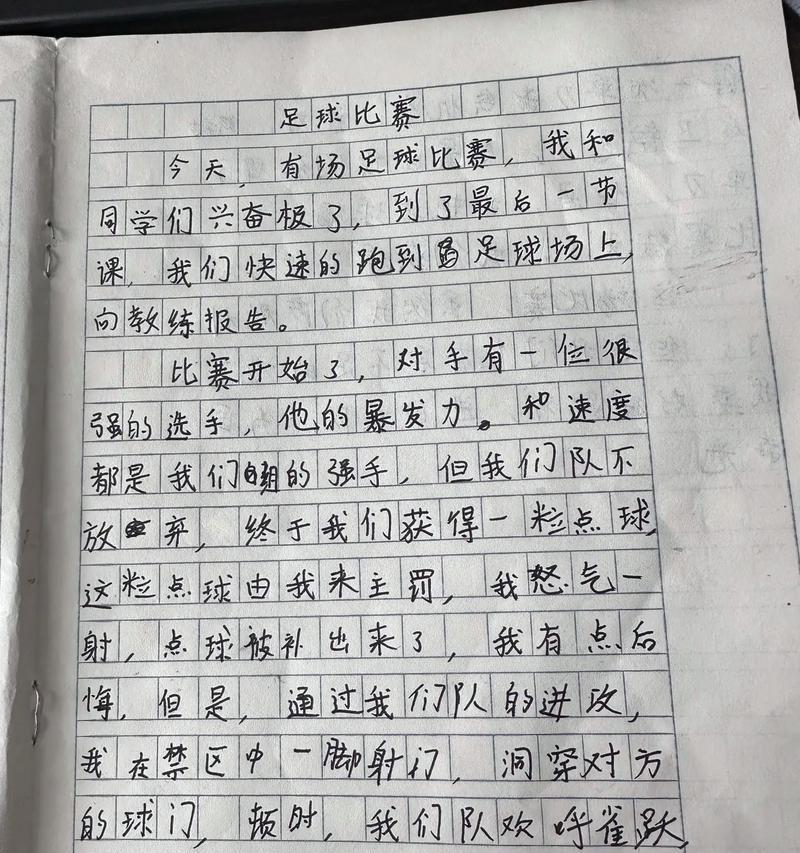 足球比赛
今天，有场足球比赛，我和
同学们兴奋极了，到了最后一节
课，我们快速的跑到足球场上，
向教练报告。
比赛开始了，对手有一位很
强的选手，他的暴发力。和速度
都是我们的强手，但我们队不
放弃，终于我们获得一粒点球，
这粒点球由我来主罚，我怒气一
射，点球被补出来了，我有点后
悔，但是，通过我们队的进攻，
我在禁区中一脚射门，洞穿对方
的球门，顿时，我们队欢呼雀跃，